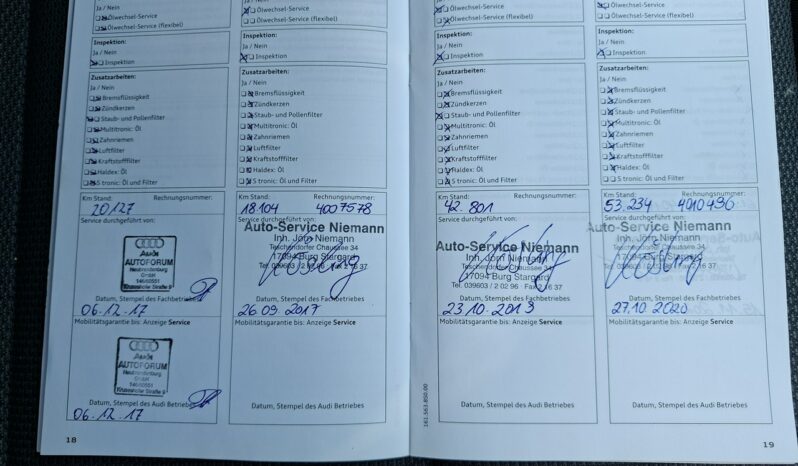 Ja / Nein
Ölwechsel-Service
Ölwechsel-Service (flexibel)
Inspektion:
Ja / Nein
Inspektion
Zusatzarbeiten:
Ja / Nein
Bremsflüssigkeit
Zündkerzen
Staub- und Pollenfilter
Multitronic: Öl
Zahnriemen
Luftfilter
Kraftstofffilter
Haldex: Öl
S tronic: Öl und Filter
Km Stand: Rechnungsnummer:
20127
Service durchgeführt von:
Audi
AUTOFORUM
Neubrandenburg
GmbH
146/50551
Krusenhofer Straße 9
Datum, Stempel des Fachbetriebes
06.12.17
Mobilitätsgarantie bis: Anzeige Service
Audi
AUTOFORUM
Neubrandenburg
GmbH
146/50551
Krusenhofer Straße 9
Datum, Stempel des Audi Betriebes
06.12.17
18
Ölwechsel-Service
Ölwechsel-Service (flexibel)
Inspektion:
Ja / Nein
Inspektion
Zusatzarbeiten:
Ja / Nein
Bremsflüssigkeit
Zündkerzen
Staub- und Pollenfilter
Multitronic: Öl
Zahnriemen
Luftfilter
Kraftstofffilter
Haldex: Öl
S tronic: Öl und Filter
Km Stand: Rechnungsnummer:
18.104 4007578
Service durchgeführt von:
Auto-Service Niemann
Inh. Jörn Niemann
Teschendorfer Chaussee 34
17094 Burg Stargard
Tel. 039603 / 2 02 96 Fax 2 16 37
Datum, Stempel des Fachbetriebes
26.09.2017
Mobilitätsgarantie bis: Anzeige Service
Datum, Stempel des Audi Betriebes
Ja / Nein
Ölwechsel-Service
Ölwechsel-Service (flexibel)
Inspektion:
Ja / Nein
Inspektion
Zusatzarbeiten:
Ja / Nein
Bremsflüssigkeit
Zündkerzen
Staub- und Pollenfilter
Multitronic: Öl
Zahnriemen
Luftfilter
Kraftstofffilter
Haldex: Öl
S tronic: Öl und Filter
Km Stand: Rechnungsnummer:
42.801
Service durchgeführt von:
Auto-Service Niemann
Inh. Jörn Niemann
Teschendorfer Chaussee 34
17094 Burg Stargard
Tel. 039603 / 2 02 96 Fax 2 16 37
Datum, Stempel des Fachbetriebes
23.10.2019
Mobilitätsgarantie bis: Anzeige Service
Datum, Stempel des Audi Betriebes
161.563.850.00
Ölwechsel-Service
Ölwechsel-Service (flexibel)
Inspektion:
Ja / Nein
Inspektion
Zusatzarbeiten:
Ja / Nein
Bremsflüssigkeit
Zündkerzen
Staub- und Pollenfilter
Multitronic: Öl
Zahnriemen
Luftfilter
Kraftstofffilter
Haldex: Öl
S tronic: Öl und Filter
Km Stand: Rechnungsnummer:
53.234 4010496
Service durchgeführt von:
Auto-Service Niemann
Inh. Jörn Niemann
Teschendorfer Chaussee 34
17094 Burg Stargard
Tel. 039603 / 2 02 96 Fax 2 16 37
Datum, Stempel des Fachbetriebes
27.10.2020
Mobilitätsgarantie bis: Anzeige Service
Datum, Stempel des Audi Betriebes
19